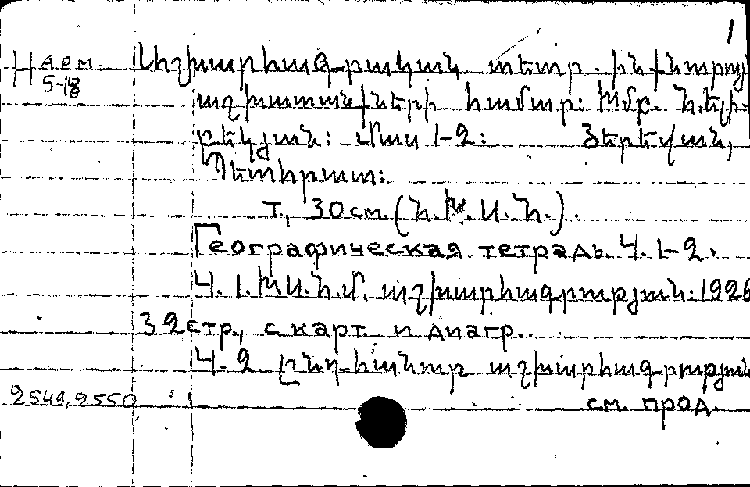 1
H арм. Աշխարհագրական տետր ինքնուրույ
5-18 աշխատանքների համար։ Խմբ. Ն. Մելի-
քեկյան։ Մաս 1-2։ Յերեվան,
Պետհրատ։
т., 30 см. (Խ. Ս. Հ.).
Географическая тетрадь. Ч. 1-2.
Ч. 1. աշխարհագրություն. 1926
32 стр., с карт. и диагр.
Ч. 2 Ընդհանուր աշխարհագրություն
2549, 2550 см. прод.